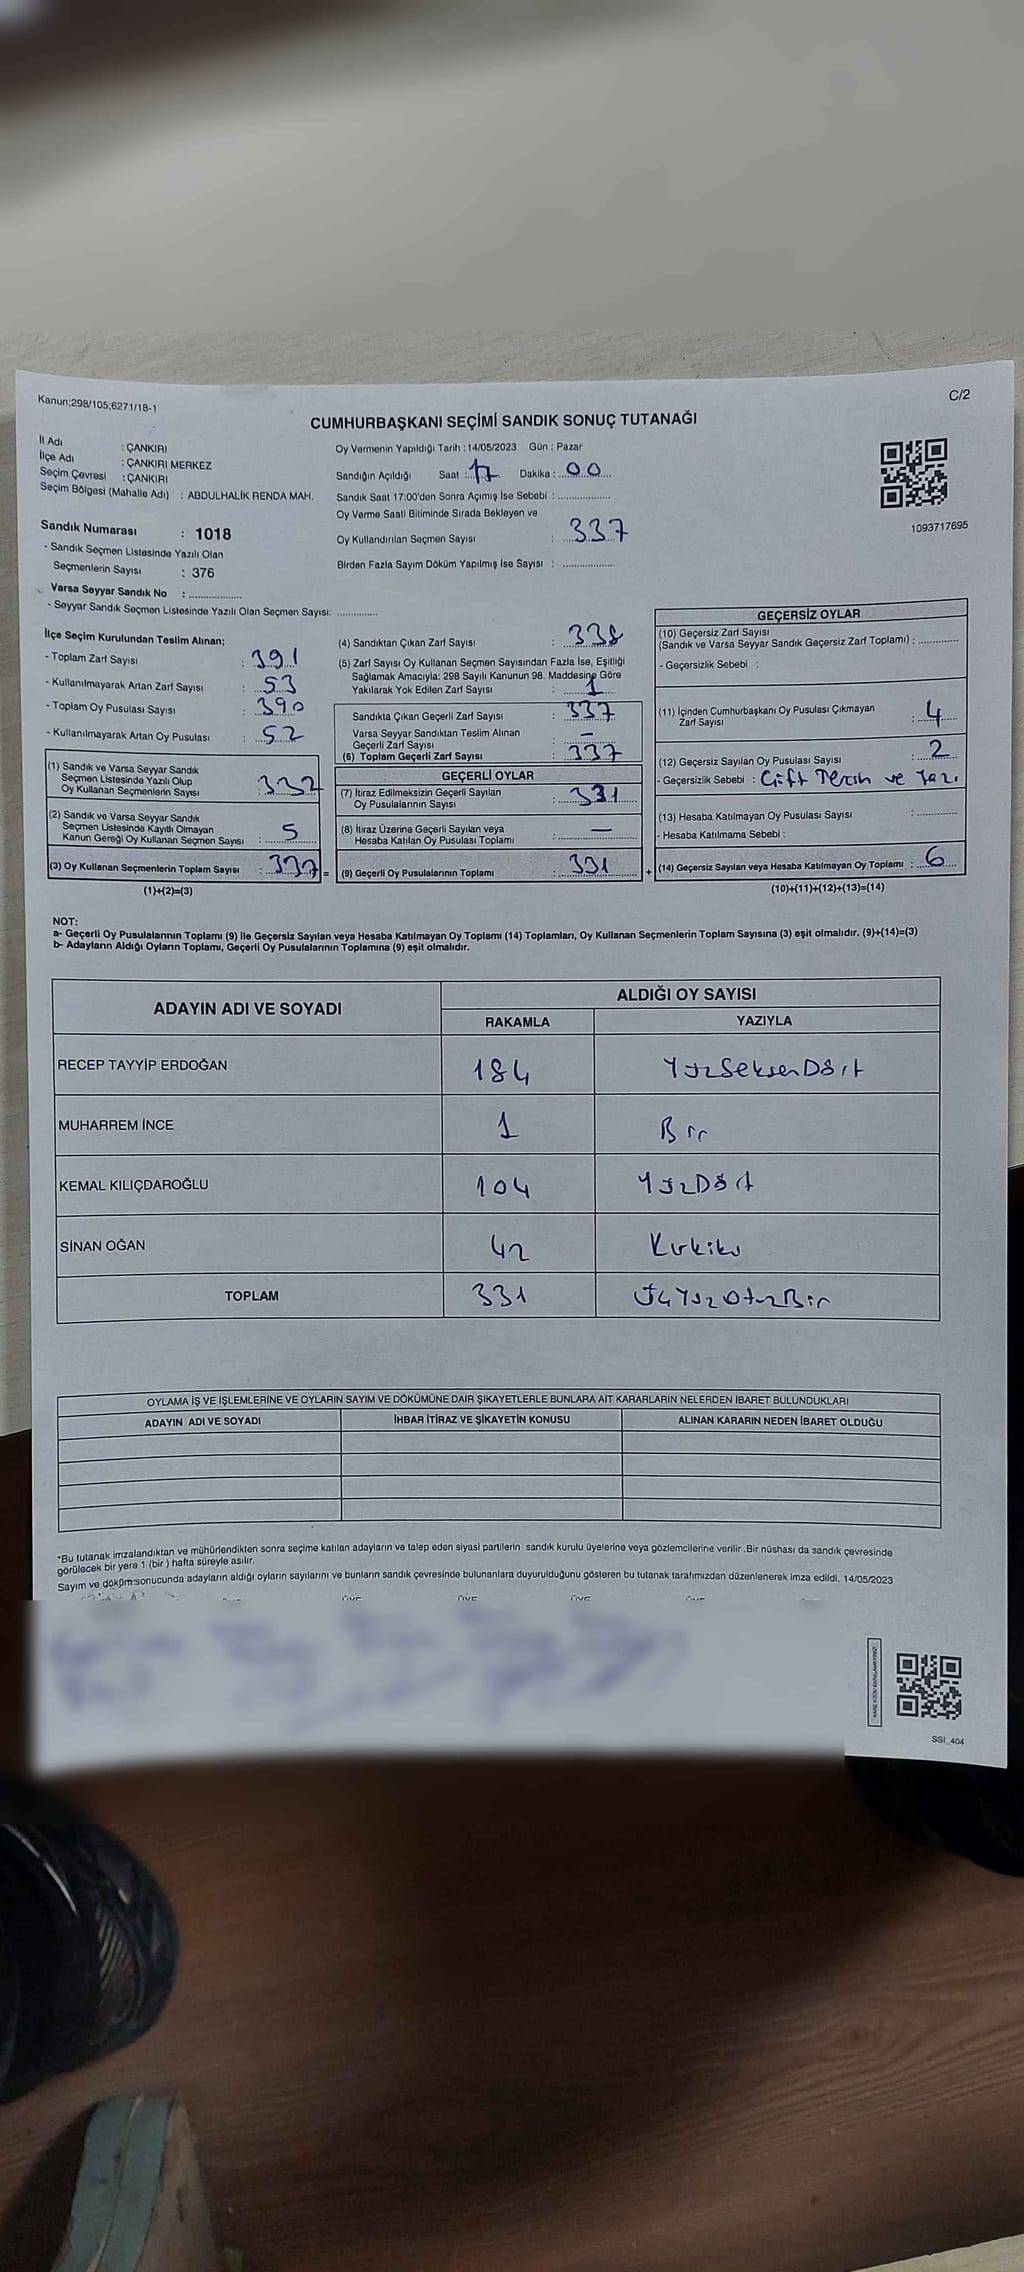 Kanun;298/105;6271/18-1
C/2
CUMHURBAŞKANI SEÇİMİ SANDIK SONUÇ TUTANAĞI
İl Adı : ÇANKIRI
İlçe Adı : ÇANKIRI MERKEZ
Seçim Çevresi : ÇANKIRI
Seçim Bölgesi (Mahalle Adı) : ABDULHALİK RENDA MAH.
Oy Vermenin Yapıldığı Tarih : 14/05/2023 Gün : Pazar
Sandığın Açıldığı Saat : 17 Dakika : 00
Sandık Saat 17:00'den Sonra Açımış İse Sebebi :
Oy Verme Saati Bitiminde Sırada Bekleyen ve
Oy Kullandırılan Seçmen Sayısı : 337
Birden Fazla Sayım Döküm Yapılmış İse Sayısı :
1093717695
Sandık Numarası : 1018
- Sandık Seçmen Listesinde Yazılı Olan
Seçmenlerin Sayısı : 376
Varsa Seyyar Sandık No :
- Seyyar Sandık Seçmen Listesinde Yazılı Olan Seçmen Sayısı:
İlçe Seçim Kurulundan Teslim Alınan;
- Toplam Zarf Sayısı : 391
- Kullanılmayarak Artan Zarf Sayısı : 53
- Toplam Oy Pusulası Sayısı : 390
- Kullanılmayarak Artan Oy Pusulası : 52
(1) Sandık ve Varsa Seyyar Sandık
Seçmen Listesinde Yazılı Olup
Oy Kullanan Seçmenlerin Sayısı : 332
(2) Sandık ve Varsa Seyyar Sandık
Seçmen Listesinde Kayıtlı Olmayan
Kanun Gereği Oy Kullanan Seçmen Sayısı : 5
(3) Oy Kullanan Seçmenlerin Toplam Sayısı : 337 =
(1)+(2)=(3)
(4) Sandıktan Çıkan Zarf Sayısı : 338
(5) Zarf Sayısı Oy Kullanan Seçmen Sayısından Fazla İse, Eşitliği
Sağlamak Amacıyla: 298 Sayılı Kanunun 98. Maddesine Göre
Yakılarak Yok Edilen Zarf Sayısı : 1
Sandıkta Çıkan Geçerli Zarf Sayısı : 337
Varsa Seyyar Sandıktan Teslim Alınan
Geçerli Zarf Sayısı : -
(6) Toplam Geçerli Zarf Sayısı : 337
GEÇERLİ OYLAR
(7) İtiraz Edilmeksizin Geçerli Sayılan
Oy Pusulalarının Sayısı : 331
(8) İtiraz Üzerine Geçerli Sayılan veya
Hesaba Katılan Oy Pusulası Toplamı : -
(9) Geçerli Oy Pusulalarının Toplamı : 331 +
GEÇERSİZ OYLAR
(10) Geçersiz Zarf Sayısı
(Sandık ve Varsa Seyyar Sandık Geçersiz Zarf Toplamı) :
- Geçersizlik Sebebi :
(11) İçinden Cumhurbaşkanı Oy Pusulası Çıkmayan
Zarf Sayısı : 4
(12) Geçersiz Sayılan Oy Pusulası Sayısı : 2
- Geçersizlik Sebebi : Çift Tercih ve Yazı
(13) Hesaba Katılmayan Oy Pusulası Sayısı :
- Hesaba Katılmama Sebebi :
(14) Geçersiz Sayılan veya Hesaba Katılmayan Oy Toplamı : 6
(10)+(11)+(12)+(13)=(14)
NOT:
a- Geçerli Oy Pusulalarının Toplamı (9) ile Geçersiz Sayılan veya Hesaba Katılmayan Oy Toplamı (14) Toplamları, Oy Kullanan Seçmenlerin Toplam Sayısına (3) eşit olmalıdır. (9)+(14)=(3)
b- Adayların Aldığı Oyların Toplamı, Geçerli Oy Pusulalarının Toplamına (9) eşit olmalıdır.
ADAYIN ADI VE SOYADI
ALDIĞI OY SAYISI
RAKAMLA YAZIYLA
RECEP TAYYİP ERDOĞAN 184 YüzSeksenDört
MUHARREM İNCE 1 Bir
KEMAL KILIÇDAROĞLU 104 YüzDört
SİNAN OĞAN 42 Kırkiki
TOPLAM 331 ÜçYüzOtuzBir
OYLAMA İŞ VE İŞLEMLERİNE VE OYLARIN SAYIM VE DÖKÜMÜNE DAİR ŞİKAYETLERLE BUNLARA AİT KARARLARIN NELERDEN İBARET BULUNDUKLARI
ADAYIN ADI VE SOYADI İHBAR İTİRAZ VE ŞİKAYETİN KONUSU ALINAN KARARIN NEDEN İBARET OLDUĞU
*Bu tutanak imzalandıktan ve mühürlendikten sonra seçime katılan adayların ve talep eden siyasi partilerin sandık kurulu üyelerine veya gözlemcilerine verilir .Bir nüshası da sandık çevresinde
görülecek bir yere 1 (bir ) hafta süreyle asılır.
Sayım ve döküm sonucunda adayların aldığı oyların sayılarını ve bunların sandık çevresinde bulunanlara duyurulduğunu gösteren bu tutanak tarafımızdan düzenlenerek imza edildi. 14/05/2023
ÜYE ÜYE ÜYE ÜYE
SSI_404